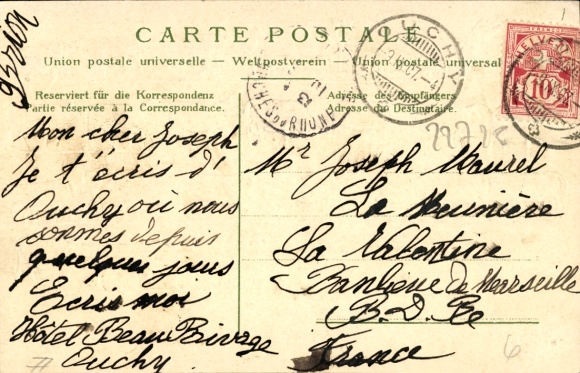 CARTE POSTALE
Union postale universelle — Weltpostverein — Union postale universal
Reserviert für die Korrespondenz
Partie réservée à la Correspondance.
Adresse des Empfängers
Adresse du Destinataire.
OUCHY
HELVETIA
10
22715
Mon cher Joseph
Je t'écris d'
Ouchy où nous
sommes depuis
quelques jours
Ecris moi
Hôtel Beau Rivage
Ouchy
Mr Joseph Maurel
La Meunière
La Valentine
Banlieue de Marseille
B. D. Rh
France
6